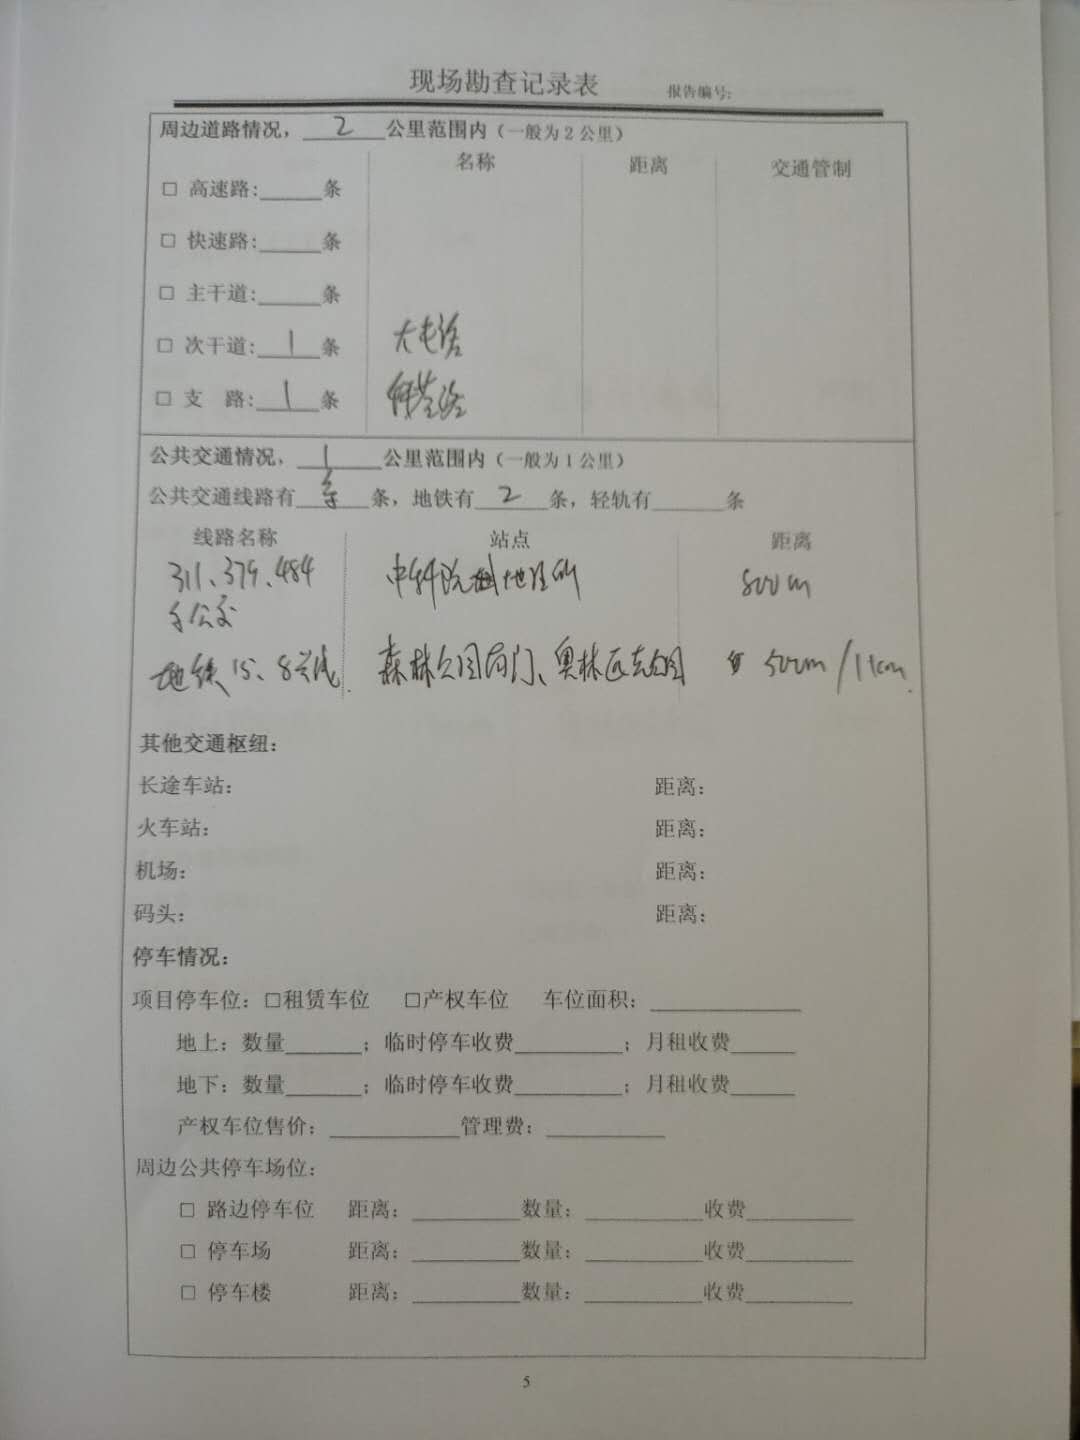 现场勘查记录表 报告编号:
周边道路情况， 2 公里范围内（一般为2公里）
名称 距离 交通管制
□ 高速路:______条
□ 快速路:______条
□ 主干道:______条
□ 次干道: 1 条 大屯路
□ 支 路: 1 条
公共交通情况， 1 公里范围内（一般为1公里）
公共交通线路有 多 条，地铁有 2 条，轻轨有______条
线路名称 站点 距离
311、379、484 中科院地理所 800m
多公交
地铁15、8号线 森林公园南门、奥林匹克公园 500m/1km
其他交通枢纽：
长途车站： 距离：
火车站： 距离：
机场： 距离：
码头： 距离：
停车情况：
项目停车位：□租赁车位 □产权车位 车位面积：____________
地上：数量______；临时停车收费_________；月租收费_____
地下：数量______；临时停车收费_________；月租收费_____
产权车位售价：__________管理费：_________
周边公共停车场位：
□ 路边停车位 距离：_________数量：_________收费_________
□ 停车场 距离：_________数量：_________收费_________
□ 停车楼 距离：_________数量：_________收费_________
5